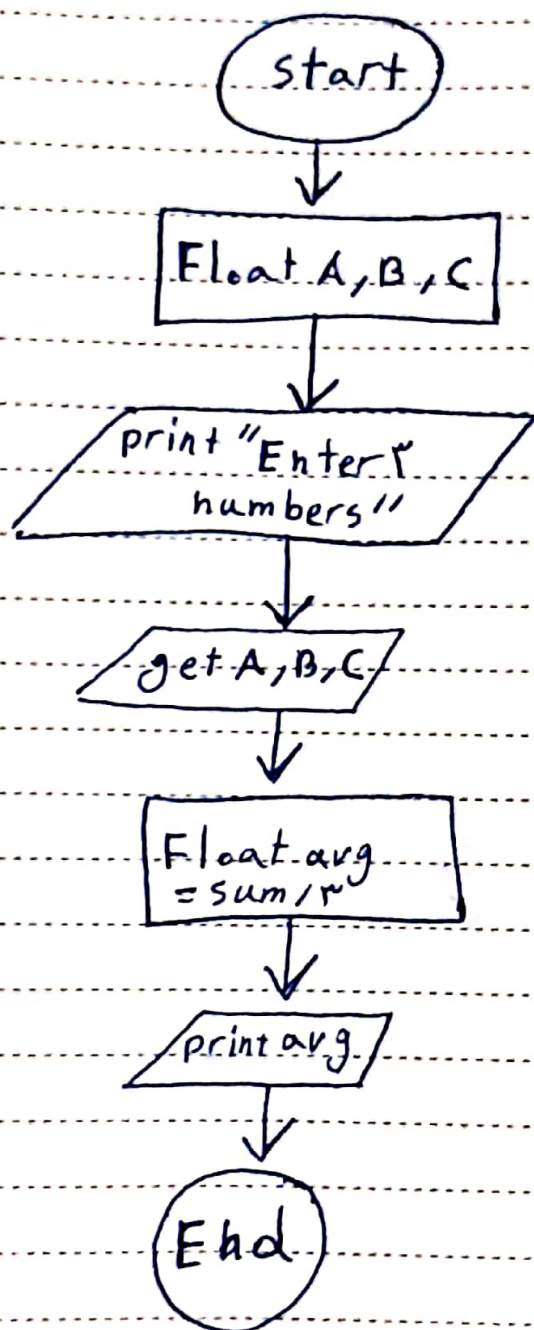 start
Float A, B, C
print "Enter ۳
numbers"
get A, B, C
Float avg
= sum / ۳
print avg
End